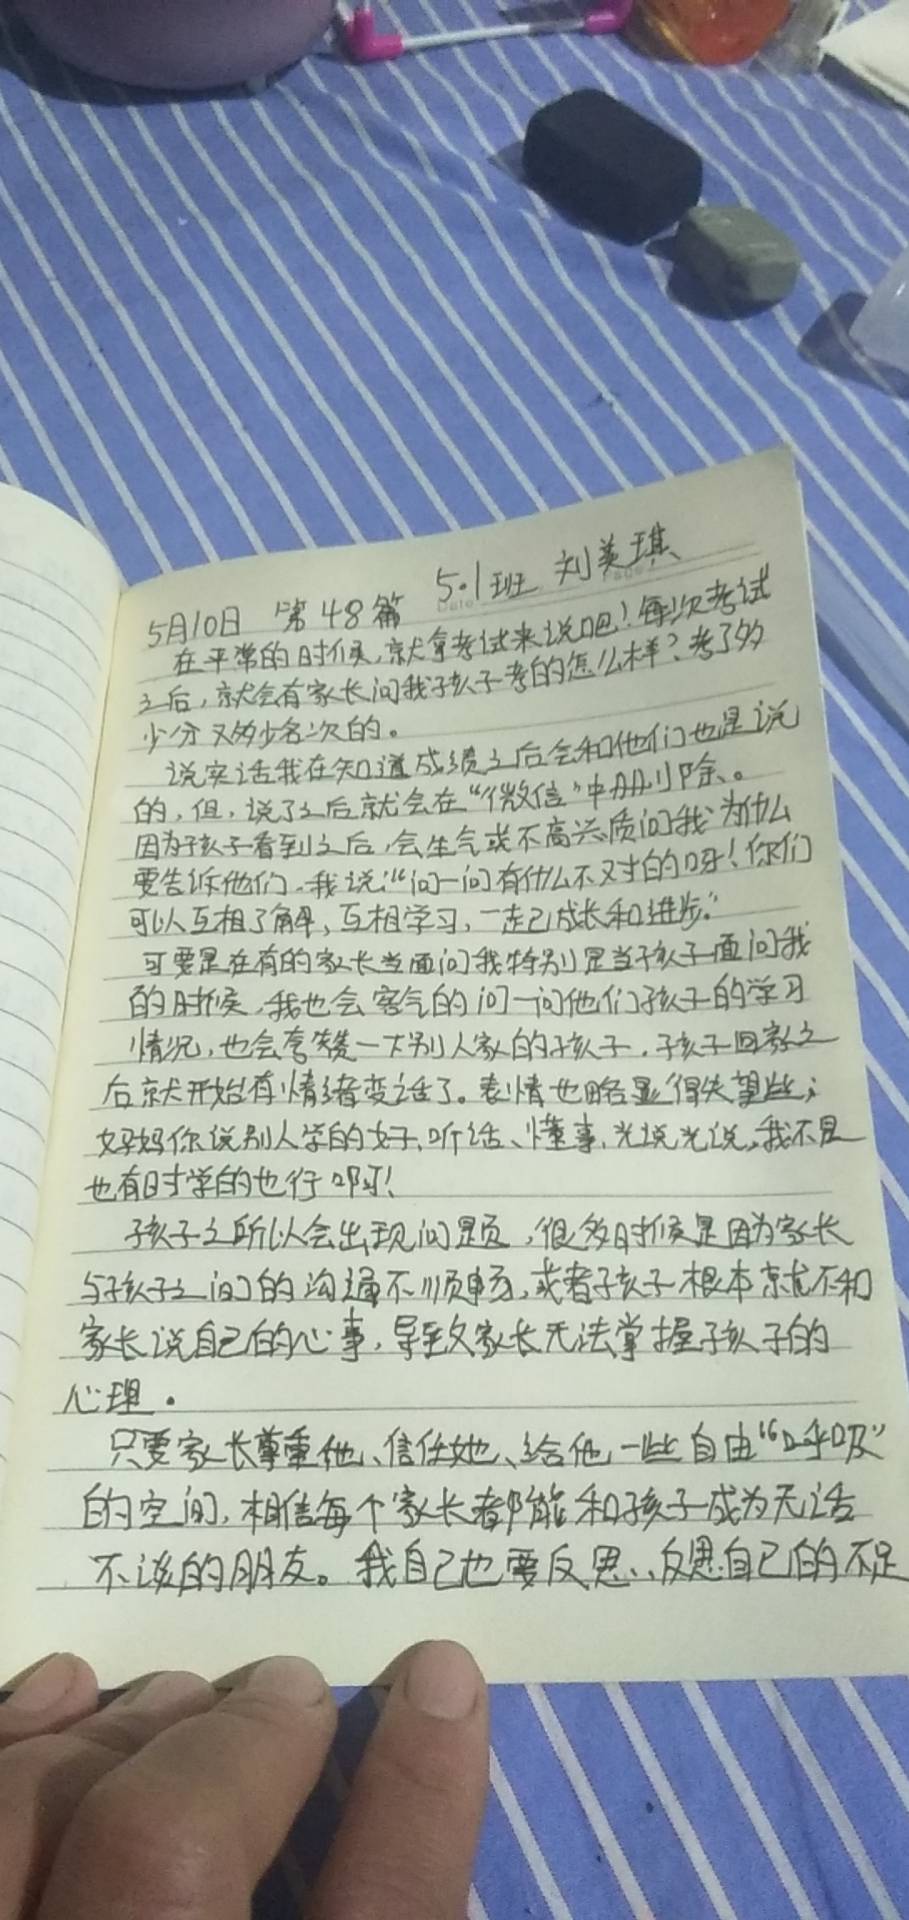 5月10日 第48篇 5.1班 刘美琪
在平常的时候,就拿考试来说吧!每次考试
之后,就会有家长问我孩子考的怎么样?考了多
少分又多少名次的。
说实话我在知道成绩之后会和他们也是说
的,但,说了之后就会在“微信”中删除。
因为孩子看到之后,会生气或不高兴质问我为什么
要告诉他们,我说:“问一问有什么不对的呀!你们
可以互相了解,互相学习,一起成长和进步。”
可要是在有的家长当面问我特别是当孩子面问我
的时候,我也会客气的问一问他们孩子的学习
情况,也会夸赞一下别人家的孩子.孩子回家之
后就开始有情绪变话了。表情也略显得失望些;
妈妈你说别人学的好、听话、懂事,光说光说,我不是
也有时学的也行啊!
孩子之所以会出现问题,很多时候是因为家长
与孩子之间的沟通不顺畅,或者孩子根本就不和
家长说自己的心事,导致家长无法掌握孩子的
心理.
只要家长尊重他、信任她、给他一些自由“呼吸”
的空间,相信每个家长都能和孩子成为无话
不谈的朋友。我自己也要反思,反思自己的不足